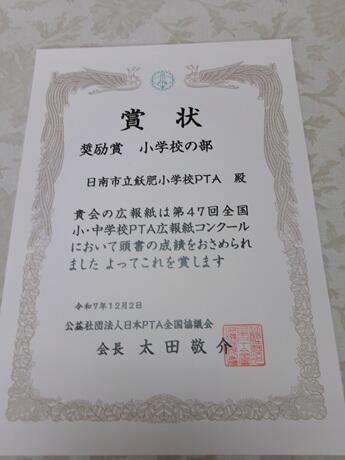 賞状
奨励賞 小学校の部
日南市立飫肥小学校PTA 殿
貴会の広報紙は第47回全国
小・中学校PTA広報紙コンクール
において頭書の成績をおさめられ
ました よってこれを賞します
令和7年12月2日
公益社団法人日本PTA全国協議会
会長 太田敬介